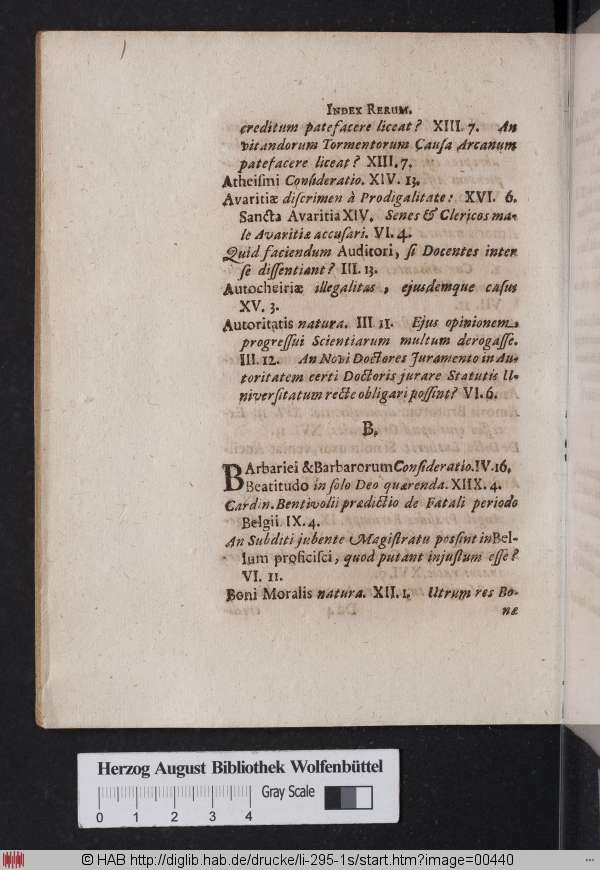 INDEX RERUM.
creditum patefacere liceat? XIII. 7. An
vitandorum Tormentorum Cauſa Arcanum
patefacere liceat? XIII. 7.
Atheiſmi Conſideratio. XIV. 13.
Avaritiæ diſcrimen à Prodigalitate: XVI. 6.
Sancta Avaritia XIV. Senes & Clericos ma-
le Avaritiæ accuſari. VI. 4.
Quid faciendum Auditori, ſi Docentes inter
ſe diſſentiant? III. 13.
Autocheiriæ illegalitas, ejusdemque caſus
XV. 3.
Autoritatis natura. III. 11. Ejus opinionem
progreſſui Scientiarum multum derogaſſe.
III. 12. An Novi Doctores Juramento in Au-
toritatem certi Doctoris jurare Statutis U-
niverſitatum recte obligari poſſint? VI. 6.
B.
BArbariei & Barbarorum Conſideratio. IV. 16.
Beatitudo in ſolo Deo quærenda. XIIX. 4.
Cardin. Bentivolii prædictio de Fatali periodo
Belgii IX. 4.
An Subditi jubente Magiſtratu poſſint in Bel-
lum proficiſci, quod putant injuſtum eſſe?
VI. 11.
Boni Moralis natura. XII. 1. Utrum res Bo-
næ
Herzog August Bibliothek Wolfenbüttel
Gray Scale
0 1 2 3 4
© HAB http://diglib.hab.de/drucke/li-295-1s/start.htm?image=00440